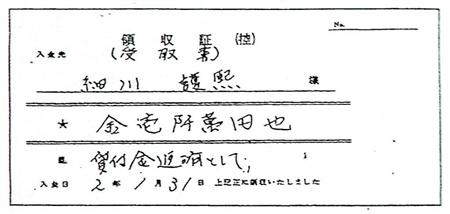 No.
領収証 (控)
入金先 (受取書)
細川護熙 様
★ 金壱阡萬円也
但 貸付金返済として、
入金日 2年1月31日 上記正に領収いたしました